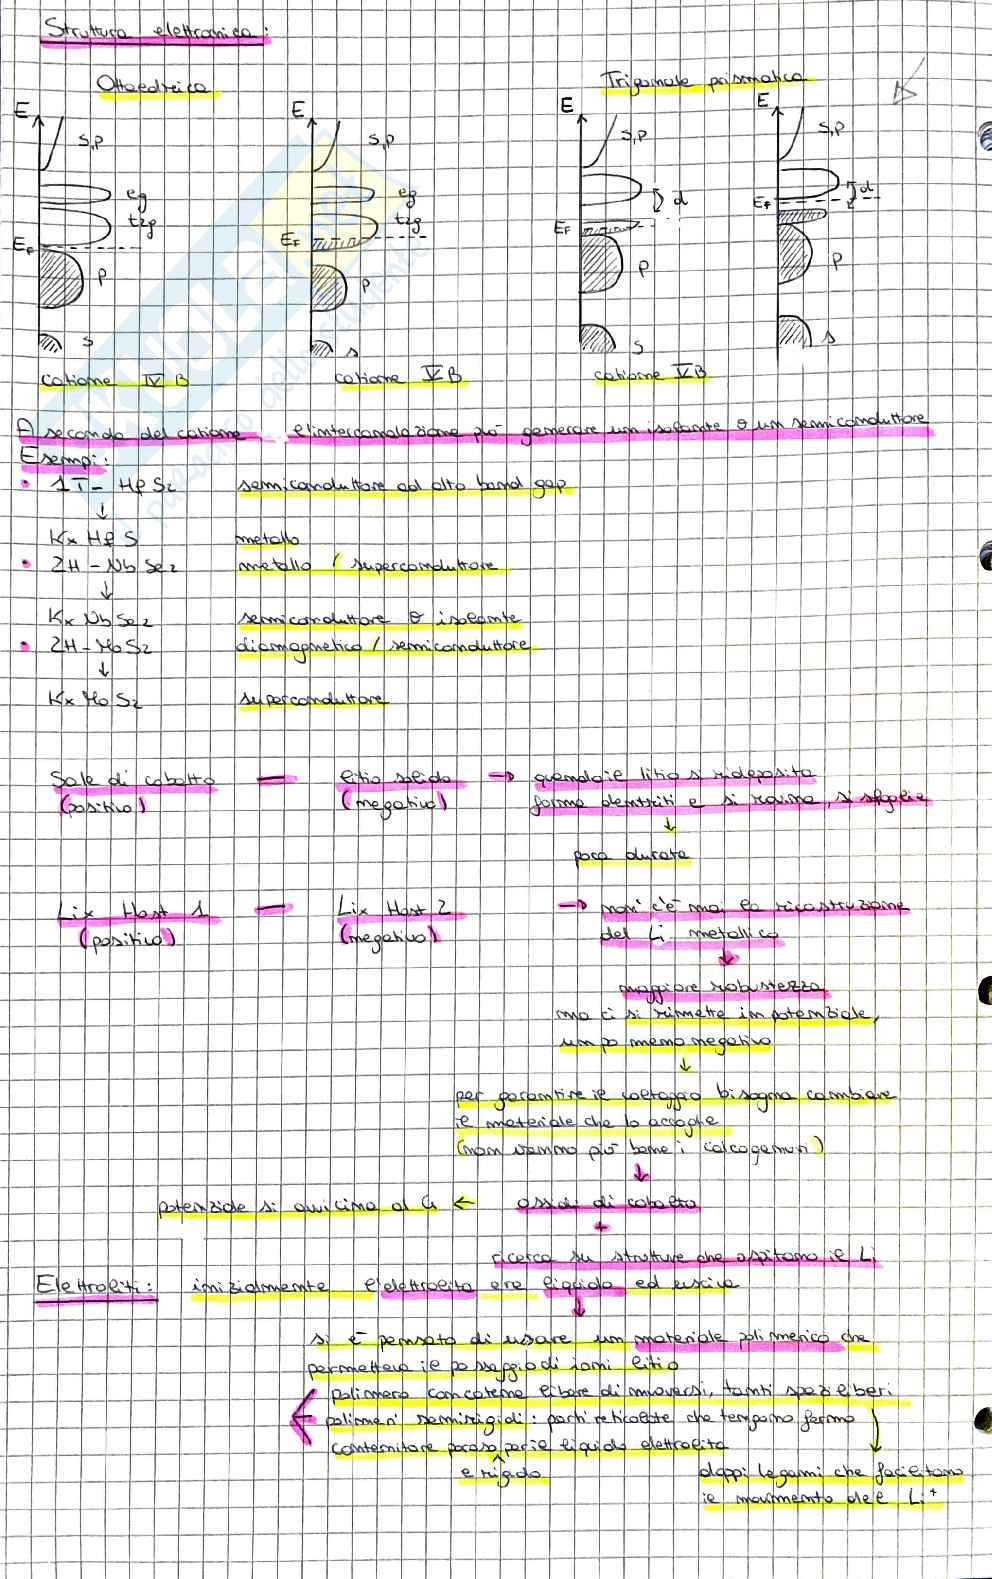 Struttura elettronica:
Ottaedrica
Trigonale prismatica
E
E
E
E
s,p
s,p
s,p
s,p
eg
eg
d
d
t2g
t2g
EF
EF
EF
EF
p
p
p
p
s
s
s
s
catione IV B
catione V B
catione V B
A seconda del catione, l'intercalazione può generare un isolante o un semiconduttore
Esempi:
• 1T - HfS2 semiconduttore ad alto band gap
↓
Kx HfS metallo
• 2H - NbSe2 metallo / superconduttore
↓
Kx NbSe2 semiconduttore o isolante
• 2H - MoS2 diamagnetico / semiconduttore
↓
Kx MoS2 superconduttore
Sale di cobalto — litio solido → quando il litio si rideposita
(positivo) (negativo) forma dentriti e si rovina, si sfoglia
↓
poca durata
Lix Host 1 — Lix Host 2 → non c'è mai la ricostruzione
(positivo) (negativo) del Li metallico
↓
maggiore robustezza
ma ci si rimette in potenziale,
un po meno negativo
↓
per garantire il voltaggio bisogna cambiare
il materiale che lo accoglie
(non vanno più bene i calcogenuri)
↓
potenziale si avvicina al 4 ← ossidi di cobalto
+
ricerca su strutture che ospitano il Li
Elettroliti: inizialmente l'elettrolita era liquido ed usciva
↓
si è pensato di usare un materiale polimerico che
permetteva il passaggio di ioni litio
polimero con catene libere di muoversi, tanti spazi liberi
polimeri semirigidi: parti reticolate che tengono fermo
contenitore poroso per il liquido elettrolita
e rigido
doppi legami che facilitano
il movimento del Li+